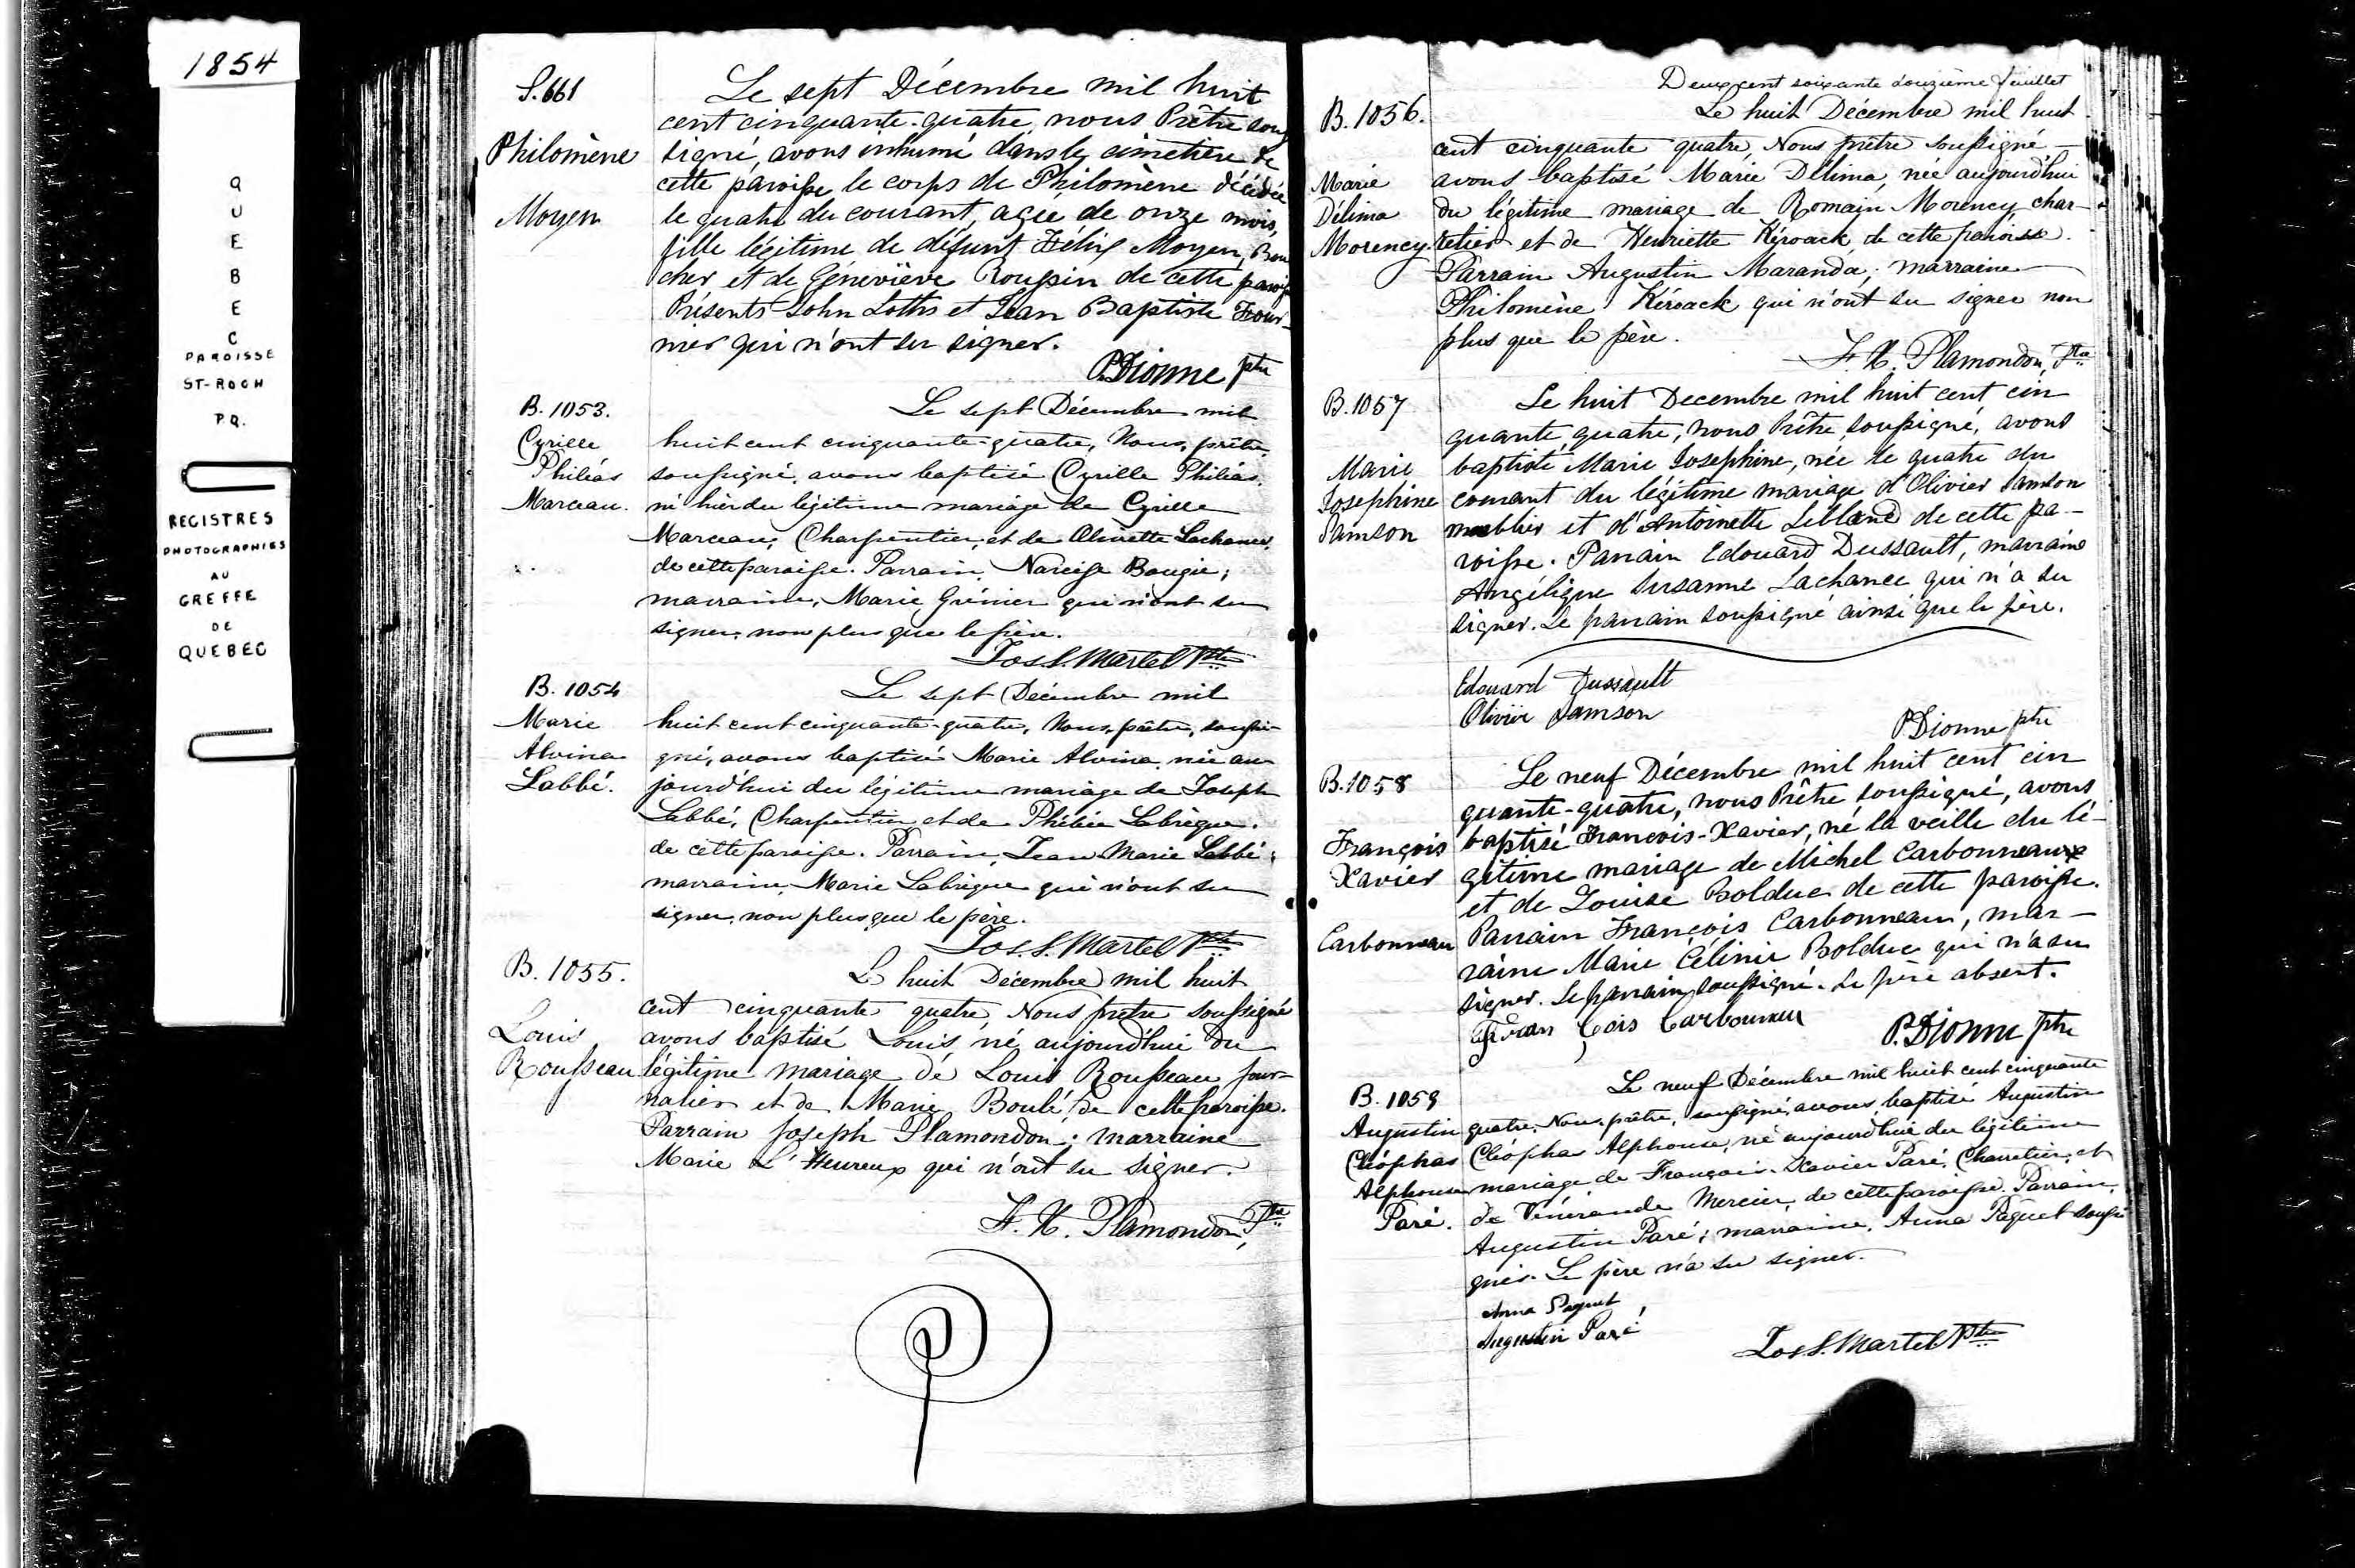 1854
QUEBEC
PAROISSE
ST-ROCH
P.Q.
REGISTRES
PHOTOGRAPHIES
AU
GREFFE
DE
QUEBEC
S. 661
Philomène
Moyen
Le sept Décembre mil huit
cent cinquante-quatre, nous Prêtre sous
signé, avons inhumé dans le cimetière de
cette paroisse le corps de Philomène décédée
le quatre du courant, agée de onze mois,
fille légitime de défunt Félix Moyen, Bou
cher et de Géneviève Roussin de cette paroisse
Présents John Loths et Jean Baptiste Four-
nier qui n'ont su signer.
P. Dionne ptre
B. 1053.
Cyrille
Philéas
Marceau.
Le sept Décembre mil
huit cent cinquante-quatre, Nous, prêtre,
soussigné, avons baptisé Cyrille Philéas,
né hier du légitime mariage de Cyrille
Marceau, Charpentier, et de Olivette Lachance,
de cette paroisse. Parrain, Narcisse Bougie;
marraine, Marie Grénier qui n'ont su
signer, non plus que le père.
Jos. S. Martel Ptre
B. 1054
Marie
Alvina
Labbé.
Le sept Décembre mil
huit cent cinquante-quatre, Nous, prêtre, soussi-
gné, avons baptisé Marie Alvina, née au
jourd'hui du légitime mariage de Joseph
Labbé, Charpentier et de Phébée Labrègue.
de cette paroisse. Parrain, Jean Marie Labbé;
marraine, Marie Labrègue qui n'ont su
signer, non plus que le père.
Jos. S. Martel Ptre
B. 1055.
Louis
Rousseau
Le huit Décembre mil huit
cent cinquante quatre Nous prêtre soussigné
avons baptisé Louis, né aujourd'hui du
légitime mariage de Louis Rousseau jour-
nalier et de Marie Boulé de cette paroisse.
Parrain Joseph Plamondon; marraine
Marie L'Heureux qui n'ont su signer.
F. X. Plamondon, Ptre
Deux cent soixante douzième feuillet
B. 1056.
Marie
Délima
Morency
Le huit Décembre mil huit
cent cinquante quatre, Nous prêtre soussigné
avons baptisé Marie Délima, née aujourd'hui
du légitime mariage de Romain Morency, char-
retier et de Henriette Kéroack de cette paroisse.
Parrain Augustin Maranda; marraine
Philomène Kéroack qui n'ont su signer non
plus que le père.
F. X. Plamondon, Ptre
B. 1057
Marie
Josephine
Samson
Le huit Decembre mil huit cent cin
quante, quatre, nous Prêtre, soussigné, avons
baptisé Marie Josephine, née le quatre du
courant du légitime mariage d'Olivier Samson
meublier et d'Antoinette Leblanc de cette pa-
roisse. Parrain Edouard Dussault, marraine
Angélique Susanne Lachance qui n'a su
signer. Le parrain soussigné ainsi que le père.
Edouard Dussault
Olivier Samson
P. Dionne ptre
B. 1058
François
Xavier
Carbonneau
Le neuf Décembre mil huit cent cin
quante-quatre, nous Prêtre soussigné, avons
baptisé François-Xavier, né la veille du lé-
gitime mariage de Michel Carbonneau
et de Louise Bolduc de cette paroisse.
Parrain François Carbonneau, mar-
raine Marie Célinie Bolduc qui n'a su
signer. Le parrain soussigné. Le père absent.
Fran çois Carbonneau
P. Dionne ptre
B. 1059
Augustin
Cléophas
Alphonse
Paré.
Le neuf Décembre mil huit cent cinquante
quatre, Nous, prêtre, soussigné, avons baptisé Augustin
Cléophas Alphonse, né aujourd'hui du légitime
mariage de François-Xavier Paré, Charretier, et
de Vénérande Mercier, de cette paroisse. Parrain,
Augustin Paré; marraine, Anna Paquet soussi
gnés. Le père n'a su signer.
Anna Paquet
Augustin Paré
Jos. S. Martel Ptre